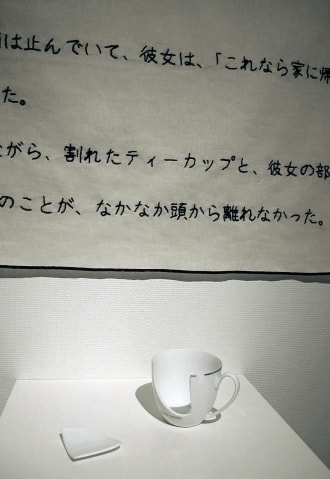 は止んでいて、彼女は、「これなら家に帰
た。
がら、割れたティーカップと、彼女の部
のことが、なかなか頭から離れなかった。